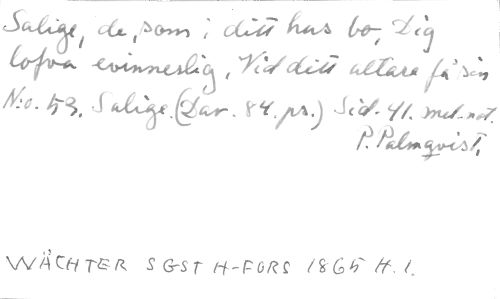 Salige, de, som i ditt hus bo, Dig
lofva evinnerlig, Vid ditt altare få sin
N:o. 53. Salige. (Dav. 84. ps.) Sid. 41. med not.
P. Palmqvist.
WÄCHTER SGST H-FORS 1865 H. 1.